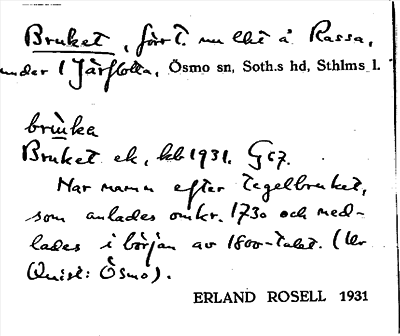 Bruket, förr t. nu lht å Rassa,
under 1 Järflotta, Ösmo sn, Soth.s hd, Sthlms l.
brùka
Bruket ek, kb 1931. G67.
Har namn efter tegelbruket,
som anlades omkr. 1730 och ned-
lades i början av 1800-talet. (Ur
Quist: Ösmo).
ERLAND ROSELL 1931